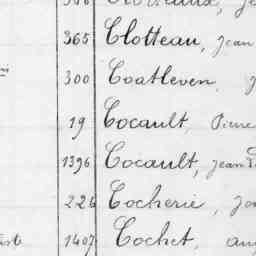 365 Clotteau, Jean
300 Coatleven,
19 Cocault, Pierre
1396 Cocault, Jean
226 Cocherie,
1407 Cochet,